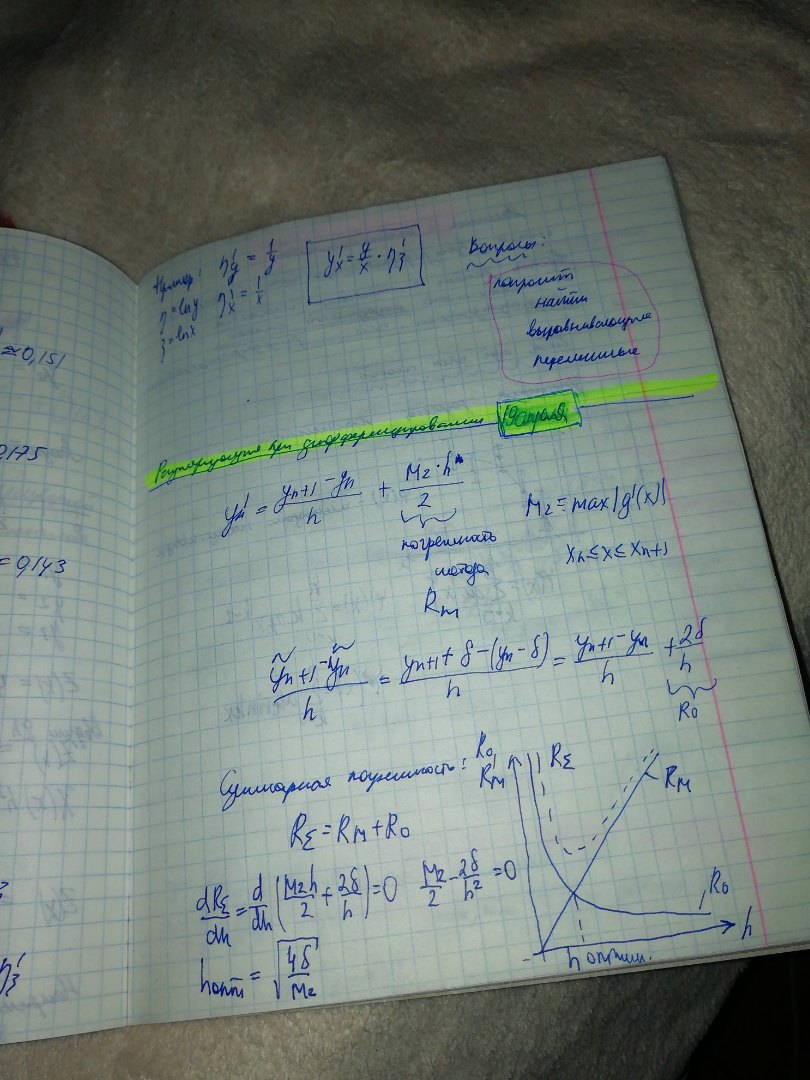 ≈0,151
0,175
=0,143
Пример: η'y = 1/y
η = ln y η'x = 1/x
ξ = ln x
y'x = y/x · η'ξ
Вопросы:
попросит
найти
выравнивающие
переменные
Регуляризация при дифференцировании 19 апреля
y'n = (yn+1 - yn)/h + M2·h/2
M2 = max|y'(x)|
погрешность
метода
Rм
xn ≤ x ≤ xn+1
(ỹn+1 - ỹn)/h = (yn+1 + δ - (yn - δ))/h = (yn+1 - yn)/h + 2δ/h
R0
Суммарная погрешность:
RΣ = Rм + R0
dRΣ/dh = d/dh (M2h/2 + 2δ/h) = 0 M2/2 - 2δ/h² = 0
hопт = √(4δ/M2)
R0,
Rм
RΣ
Rм
R0
h
h оптим.